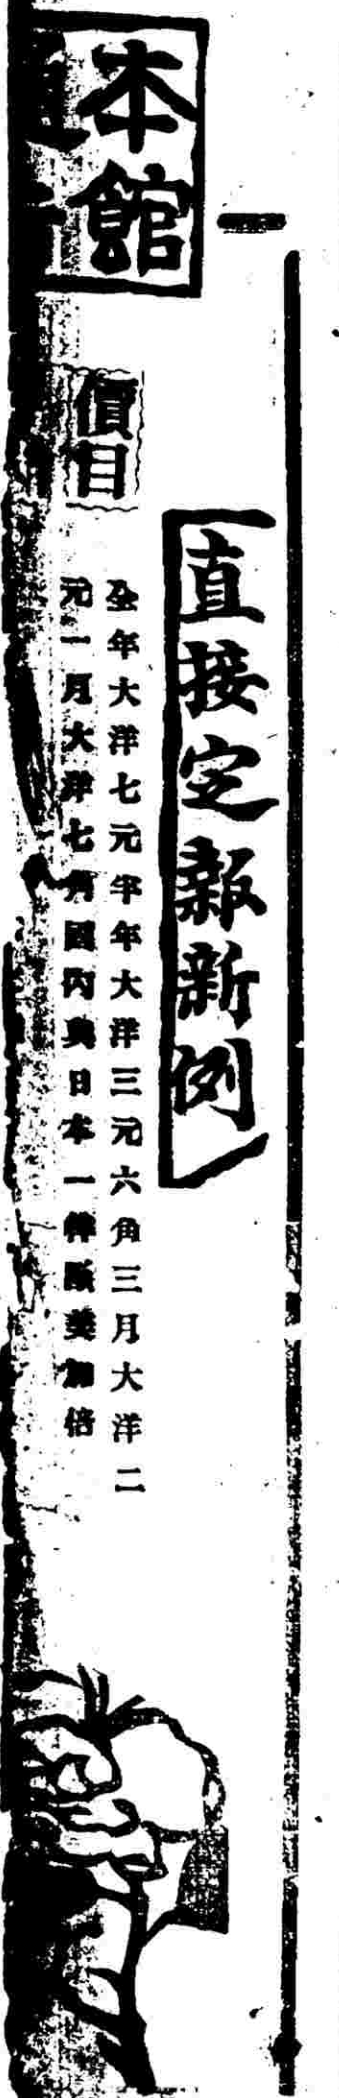 直接定報新例
本館
價目
全年大洋七元半年大洋三元六角三月大洋二
元一月大洋七角國內與日本一律歐美加倍